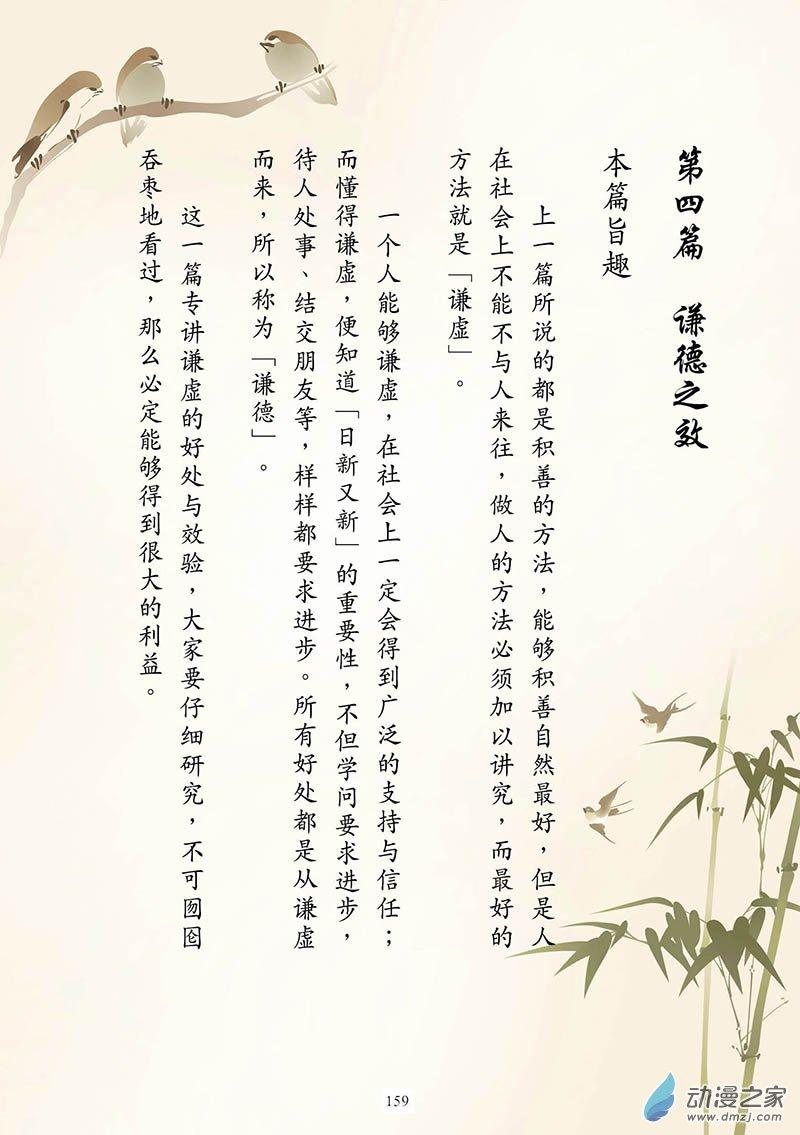 第四篇　谦德之效
本篇旨趣
上一篇所说的都是积善的方法，能够积善自然最好，但是人
在社会上不能不与人来往，做人的方法必须加以讲究，而最好的
方法就是「谦虚」。
一个人能够谦虚，在社会上一定会得到广泛的支持与信任；
而懂得谦虚，便知道「日新又新」的重要性，不但学问要求进步，
待人处事、结交朋友等，样样都要求进步。所有好处都是从谦虚
而来，所以称为「谦德」。
这一篇专讲谦虚的好处与效验，大家要仔细研究，不可囫囵
吞枣地看过，那么必定能够得到很大的利益。
159
动漫之家
www.dmzj.com